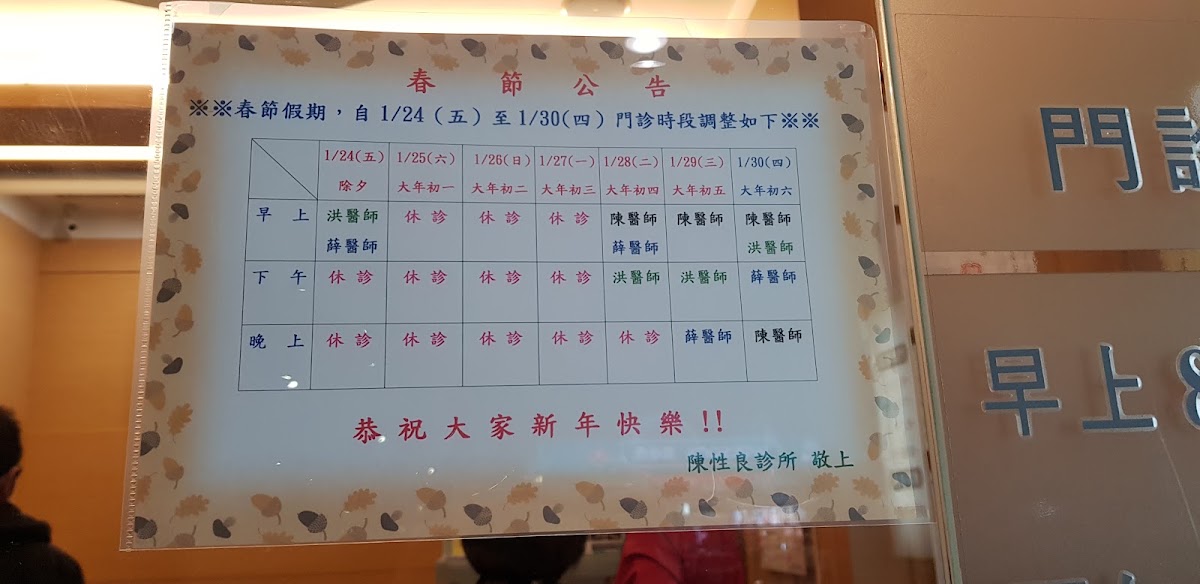 春節公告
※※春節假期，自1/24（五）至1/30(四）門診時段調整如下※※
1/24(五) 1/25(六) 1/26(日) 1/27(一) 1/28(二) 1/29(三) 1/30(四)
除夕 大年初一 大年初二 大年初三 大年初四 大年初五 大年初六
早上 洪醫師 休診 休診 休診 陳醫師 陳醫師 陳醫師
薛醫師 薛醫師 洪醫師
下午 休診 休診 休診 休診 洪醫師 洪醫師 薛醫師
晚上 休診 休診 休診 休診 休診 薛醫師 陳醫師
恭祝大家新年快樂!!
陳性良診所 敬上
門診
早上8